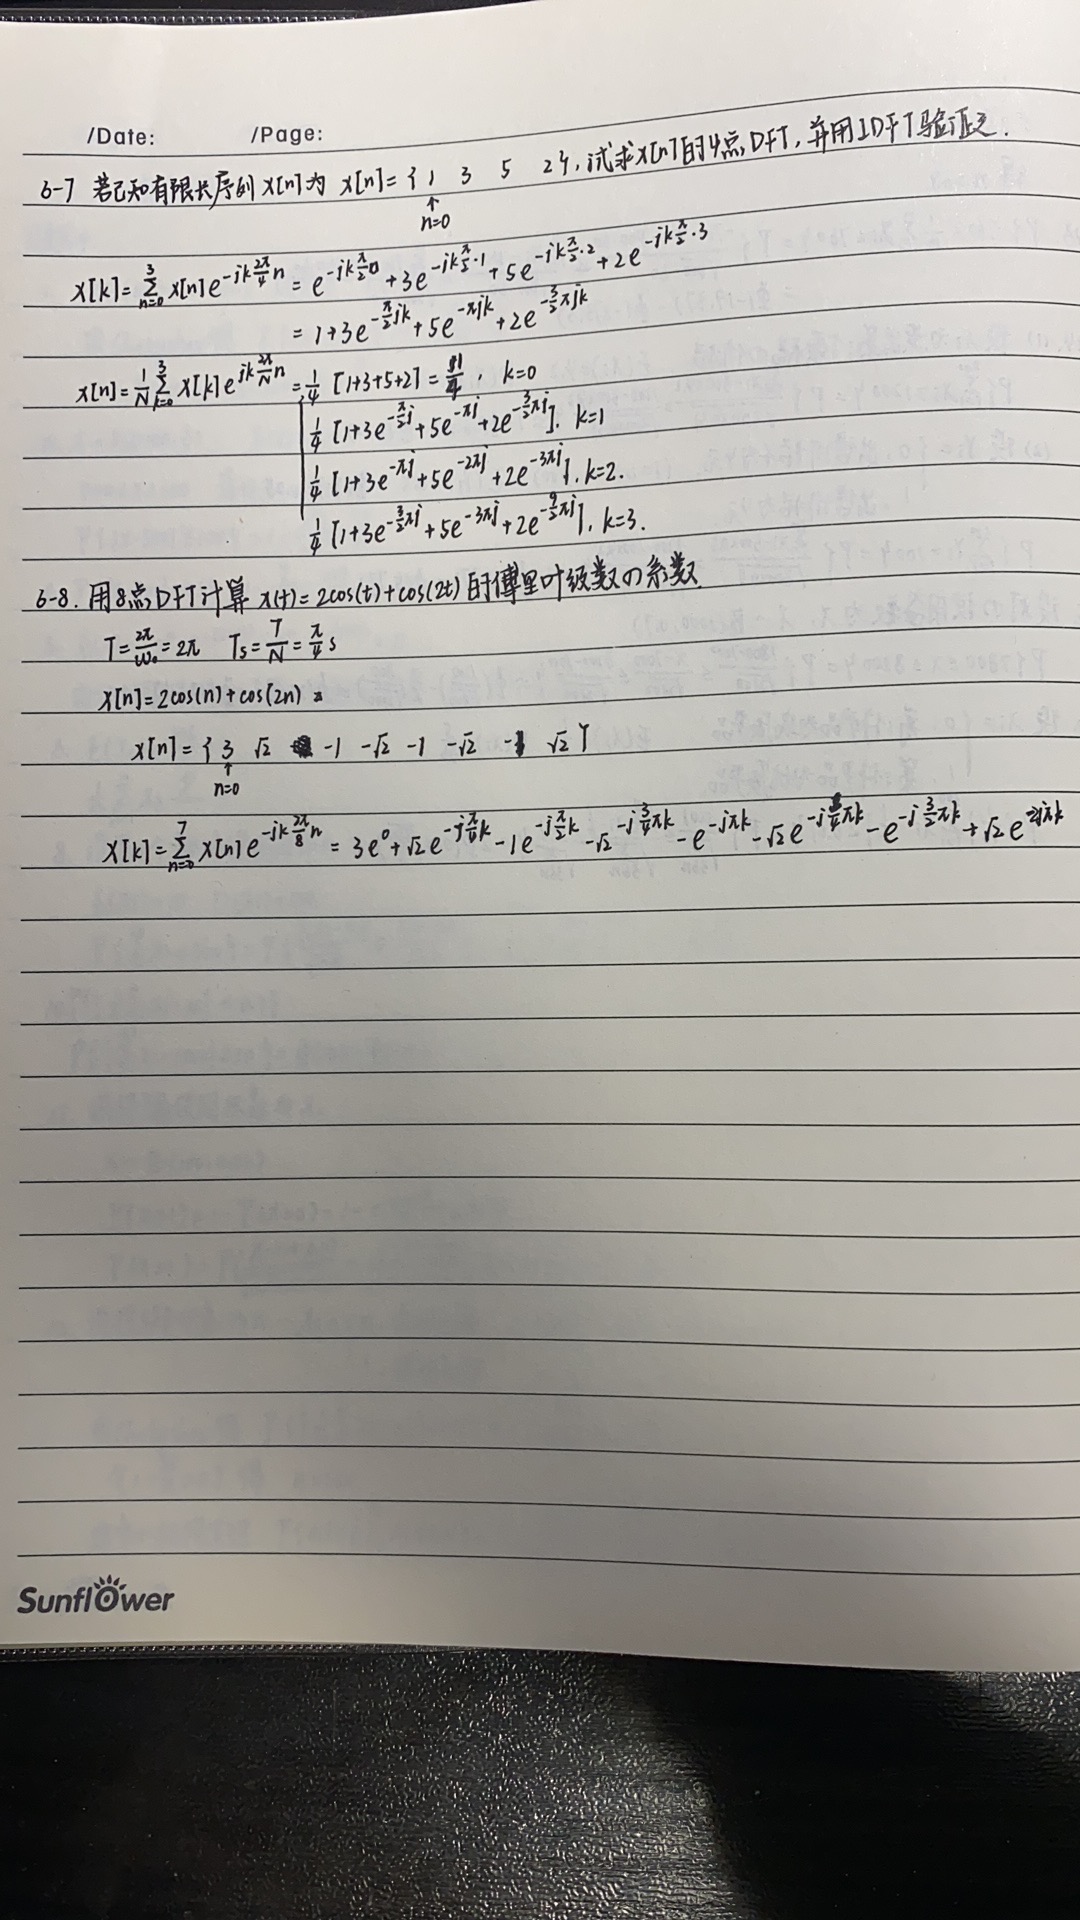 /Date: /Page:
6-7 若已知有限长序列 x[n]为 x[n]={1 3 5 2}, 试求x[n]的4点DFT, 并用IDFT验证之.
↑
n=0
X[k]=∑_{n=0}^{3} x[n]e^{-jk\frac{2π}{4}n} = e^{-jk\frac{π}{2}·0}+3e^{-jk\frac{π}{2}·1}+5e^{-jk\frac{π}{2}·2}+2e^{-jk\frac{π}{2}·3}
= 1+3e^{-\frac{π}{2}jk}+5e^{-πjk}+2e^{-\frac{3}{2}πjk}
x[n]=\frac{1}{N}∑_{k=0}^{3} X[k]e^{jk\frac{2π}{N}n} = \frac{1}{4}[1+3+5+2]=\frac{11}{4}, k=0
\frac{1}{4}[1+3e^{-\frac{π}{2}j}+5e^{-πj}+2e^{-\frac{3}{2}πj}], k=1
\frac{1}{4}[1+3e^{-πj}+5e^{-2πj}+2e^{-3πj}], k=2.
\frac{1}{4}[1+3e^{-\frac{3}{2}πj}+5e^{-3πj}+2e^{-\frac{9}{2}πj}], k=3.
6-8. 用8点DFT计算 x(t)=2cos(t)+cos(2t)的傅里叶级数の系数
T=\frac{2π}{ω₀}=2π Ts=\frac{T}{N}=\frac{π}{4}s
x[n]=2cos(n)+cos(2n)
x[n]={3 √2 -1 -√2 -1 -√2 -1 √2}
↑
n=0
X[k]=∑_{n=0}^{7} x[n]e^{-jk\frac{2π}{8}n} = 3e^{0}+√2e^{-j\frac{π}{4}k}-1e^{-j\frac{π}{2}k}-√2^{-j\frac{3}{4}πk}-e^{-jπk}-√2e^{-j\frac{5}{4}πk}-e^{-j\frac{3}{2}πk}+√2e
Sunflower